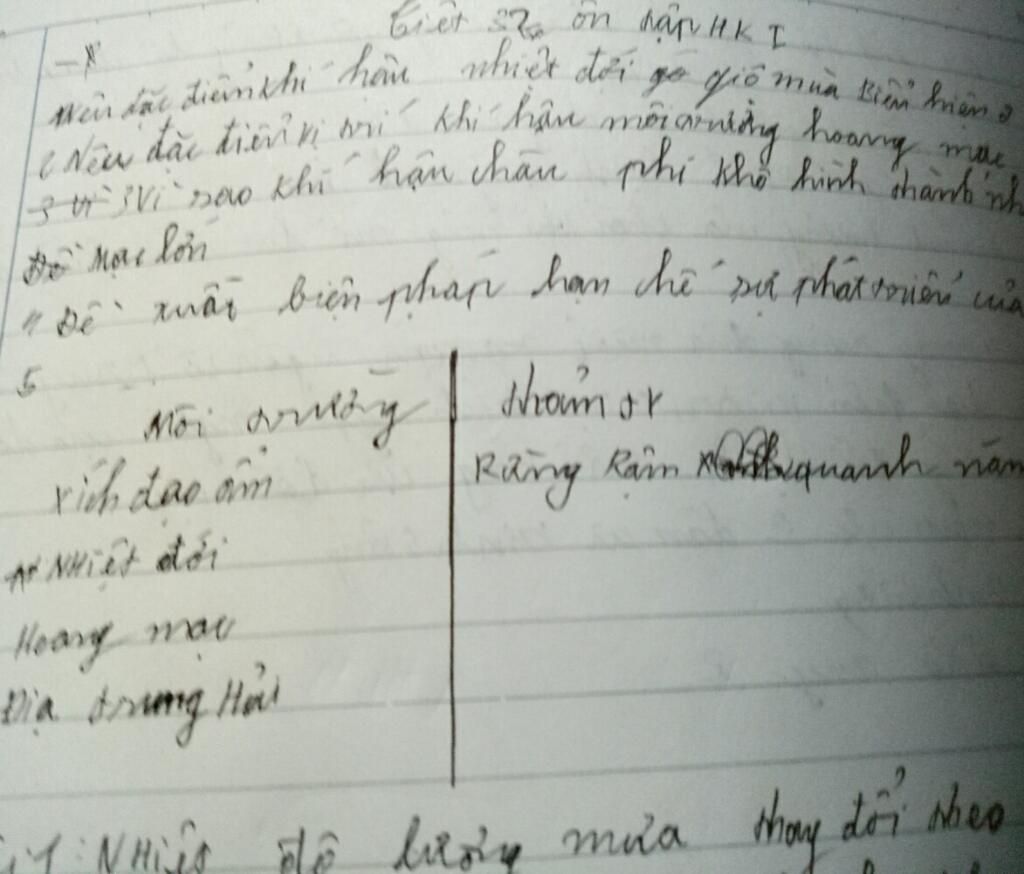 Tiết 32 ôn tập HK I
Nêu đặc điểm khí hậu nhiệt đới gió mùa biểu hiện ở
Nêu đặc điểm vị trí khí hậu môi trường hoang mạc
3 Vì sao khí hậu châu phi khô hình thành nh
Mạc lớn
4 Đề xuất biện pháp hạn chế sự phát triển của
5
Môi trường | thảm tv
xích đạo ẩm | Rừng Rậm quanh năm
Nhiệt đới
Hoang mạc
Địa trung Hải
Nhiệt độ lượng mưa thay đổi theo